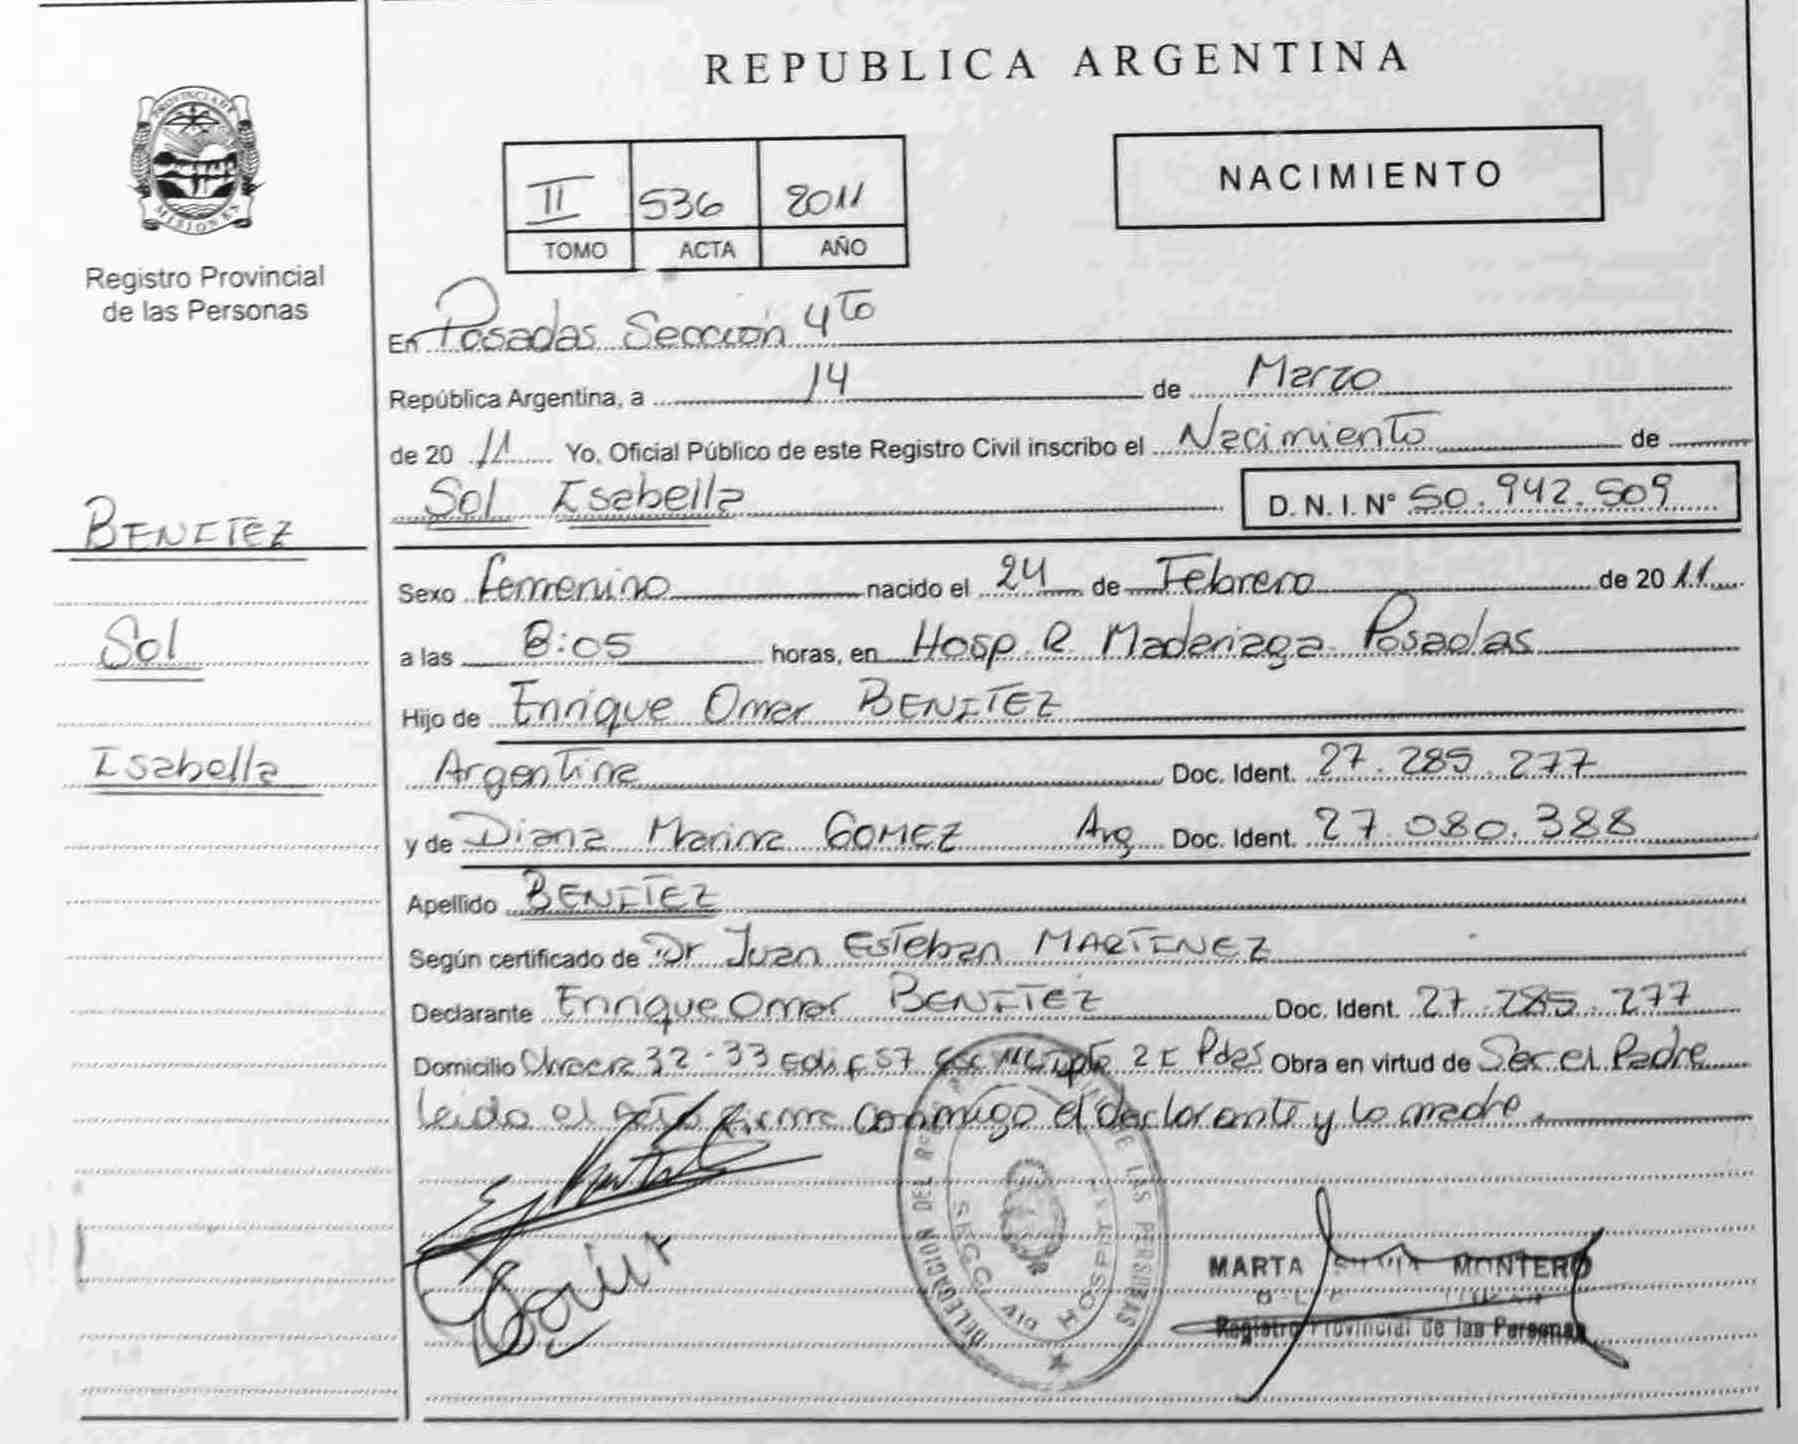 REPUBLICA ARGENTINA
PROVINCIA DE MISIONES
Registro Provincial
de las Personas
II 536 2011
TOMO ACTA AÑO
NACIMIENTO
En Posadas Sección 4to
República Argentina, a 14 de Marzo
de 2011 Yo, Oficial Público de este Registro Civil inscribo el Nacimiento de
Sol Isabella D. N. I. N° 50.942.509
BENITEZ
Sol
Isabella
Sexo femenino nacido el 24 de Febrero de 2011
a las 8:05 horas, en Hosp. R. Madariaga Posadas
Hijo de Enrique Omar BENITEZ
Argentina Doc. Ident. 27.285.277
y de Diana Marina GOMEZ Arg Doc. Ident. 27.080.388
Apellido BENITEZ
Según certificado de Dr Juan Esteban MARTINEZ
Declarante Enrique Omar BENITEZ Doc. Ident. 27.285.277
Domicilio Chacra 32-33 Edif 57 Pdas Obra en virtud de Ser el Padre
leido el acta firma conmigo el declarante y la madre.
DELEGACION DEL DE LAS PERSONAS
HOSPITAL
MARTA SILVIA MONTERO
Registro Provincial de las Personas